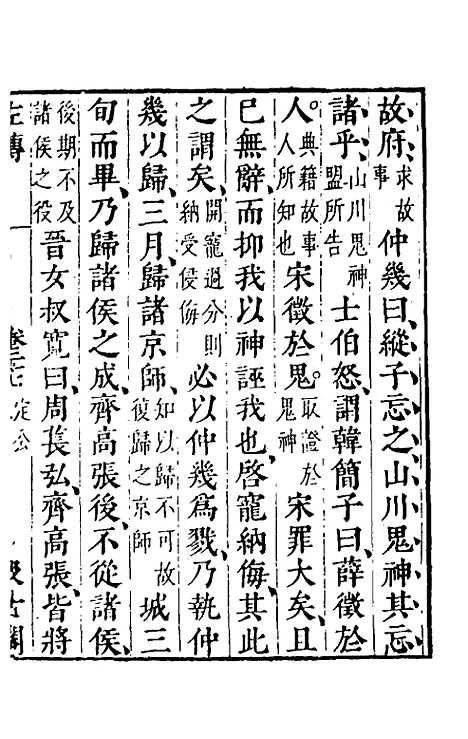 故府求故事仲幾曰縱子忘之山川鬼神其忘
諸乎山川鬼神盟所告士伯怒謂韓簡子曰薛徵於
人典籍故事人所知也宋徵於鬼取證於鬼神宋罪大矣且
已無辭而抑我以神誣我也啓寵納侮其此
之謂矣開寵過分則納受侵侮必以仲幾爲戮乃執仲
幾以歸三月歸諸京師知以歸不可故復歸之京師城三
旬而畢乃歸諸侯之戍齊高張後不從諸侯
後期不及諸侯之役晉女叔寬曰周萇弘齊高張皆將
左傳 卷二七 定公 汲古閣